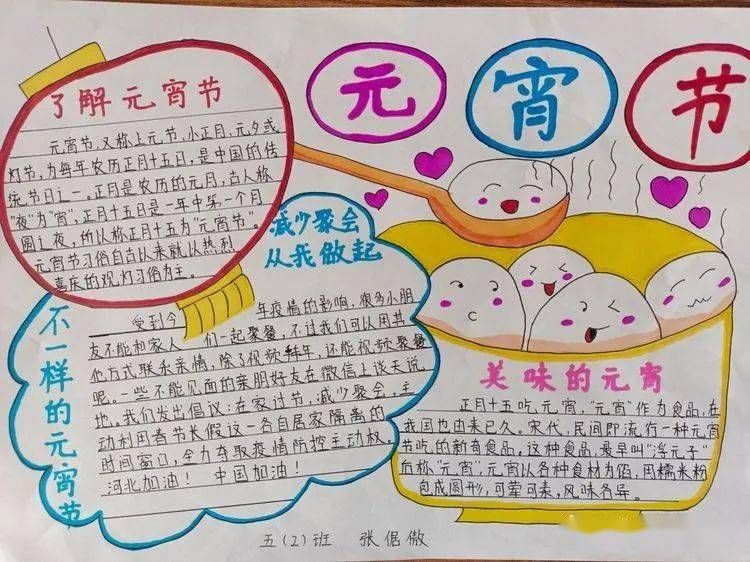 元宵节
了解元宵节
元宵节,又称上元节、小正月、元夕或
灯节,为每年农历正月十五日,是中国的传
统节日之一。正月是农历的元月,古人称
“夜”为“宵”,正月十五日是一年中第一个月
圆之夜,所以称正月十五为“元宵节”。
元宵节习俗自古以来就以热烈
喜庆的观灯习俗为主。
减少聚会
从我做起
不一样的元宵节
受到今 年疫情的影响,很多小朋
友不能和家人 们一起聚餐,不过我们可以用其
他方式联系亲情,除了视频拜年,还能视频聚餐
呢。一些不能见面的亲朋好友在微信上谈天说
地。我们发出倡议:在家过节,减少聚会,主
动利用春节长假这一各自居家隔离的
时间窗口,全力夺取疫情防控主动权。
河北加油! 中国加油!
美味的元宵
正月十五吃元宵,“元宵”作为食品,在
我国也由来已久。宋代,民间即流行一种元宵
节吃的新奇食品,这种食品,最早叫“浮元子”
后称“元宵”,元宵以各种食材为馅,用糯米粉
包成圆形,可荤可素,风味各异。
五(2)班 张倨傲